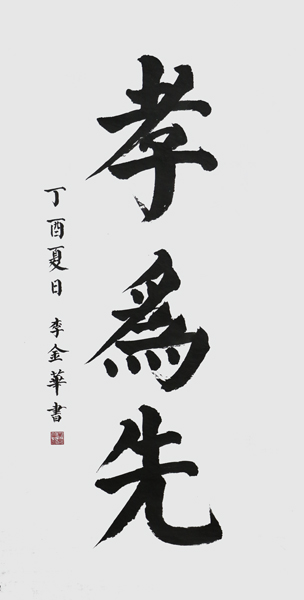 孝為先
丁酉夏日 李金華書